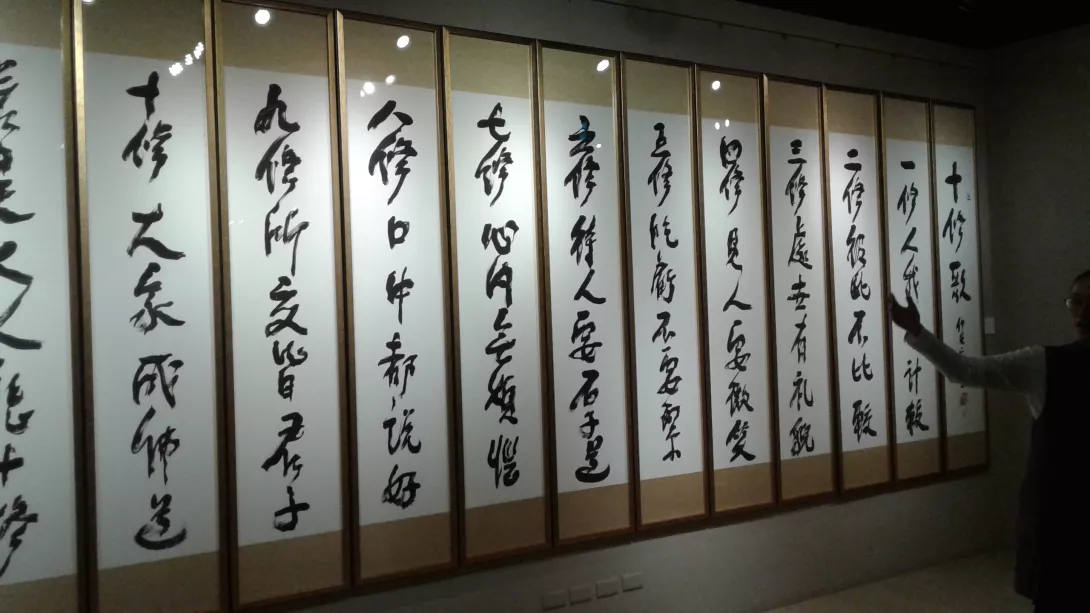 十修歌
一修人我計較
二修彼此不比較
三修處世有礼貌
四修見人要微笑
五修吃虧不要緊
六修待人要厚道
七修心內無煩惱
八修口中都說好
九修所交皆君子
十修大家成佛道
人人能十修